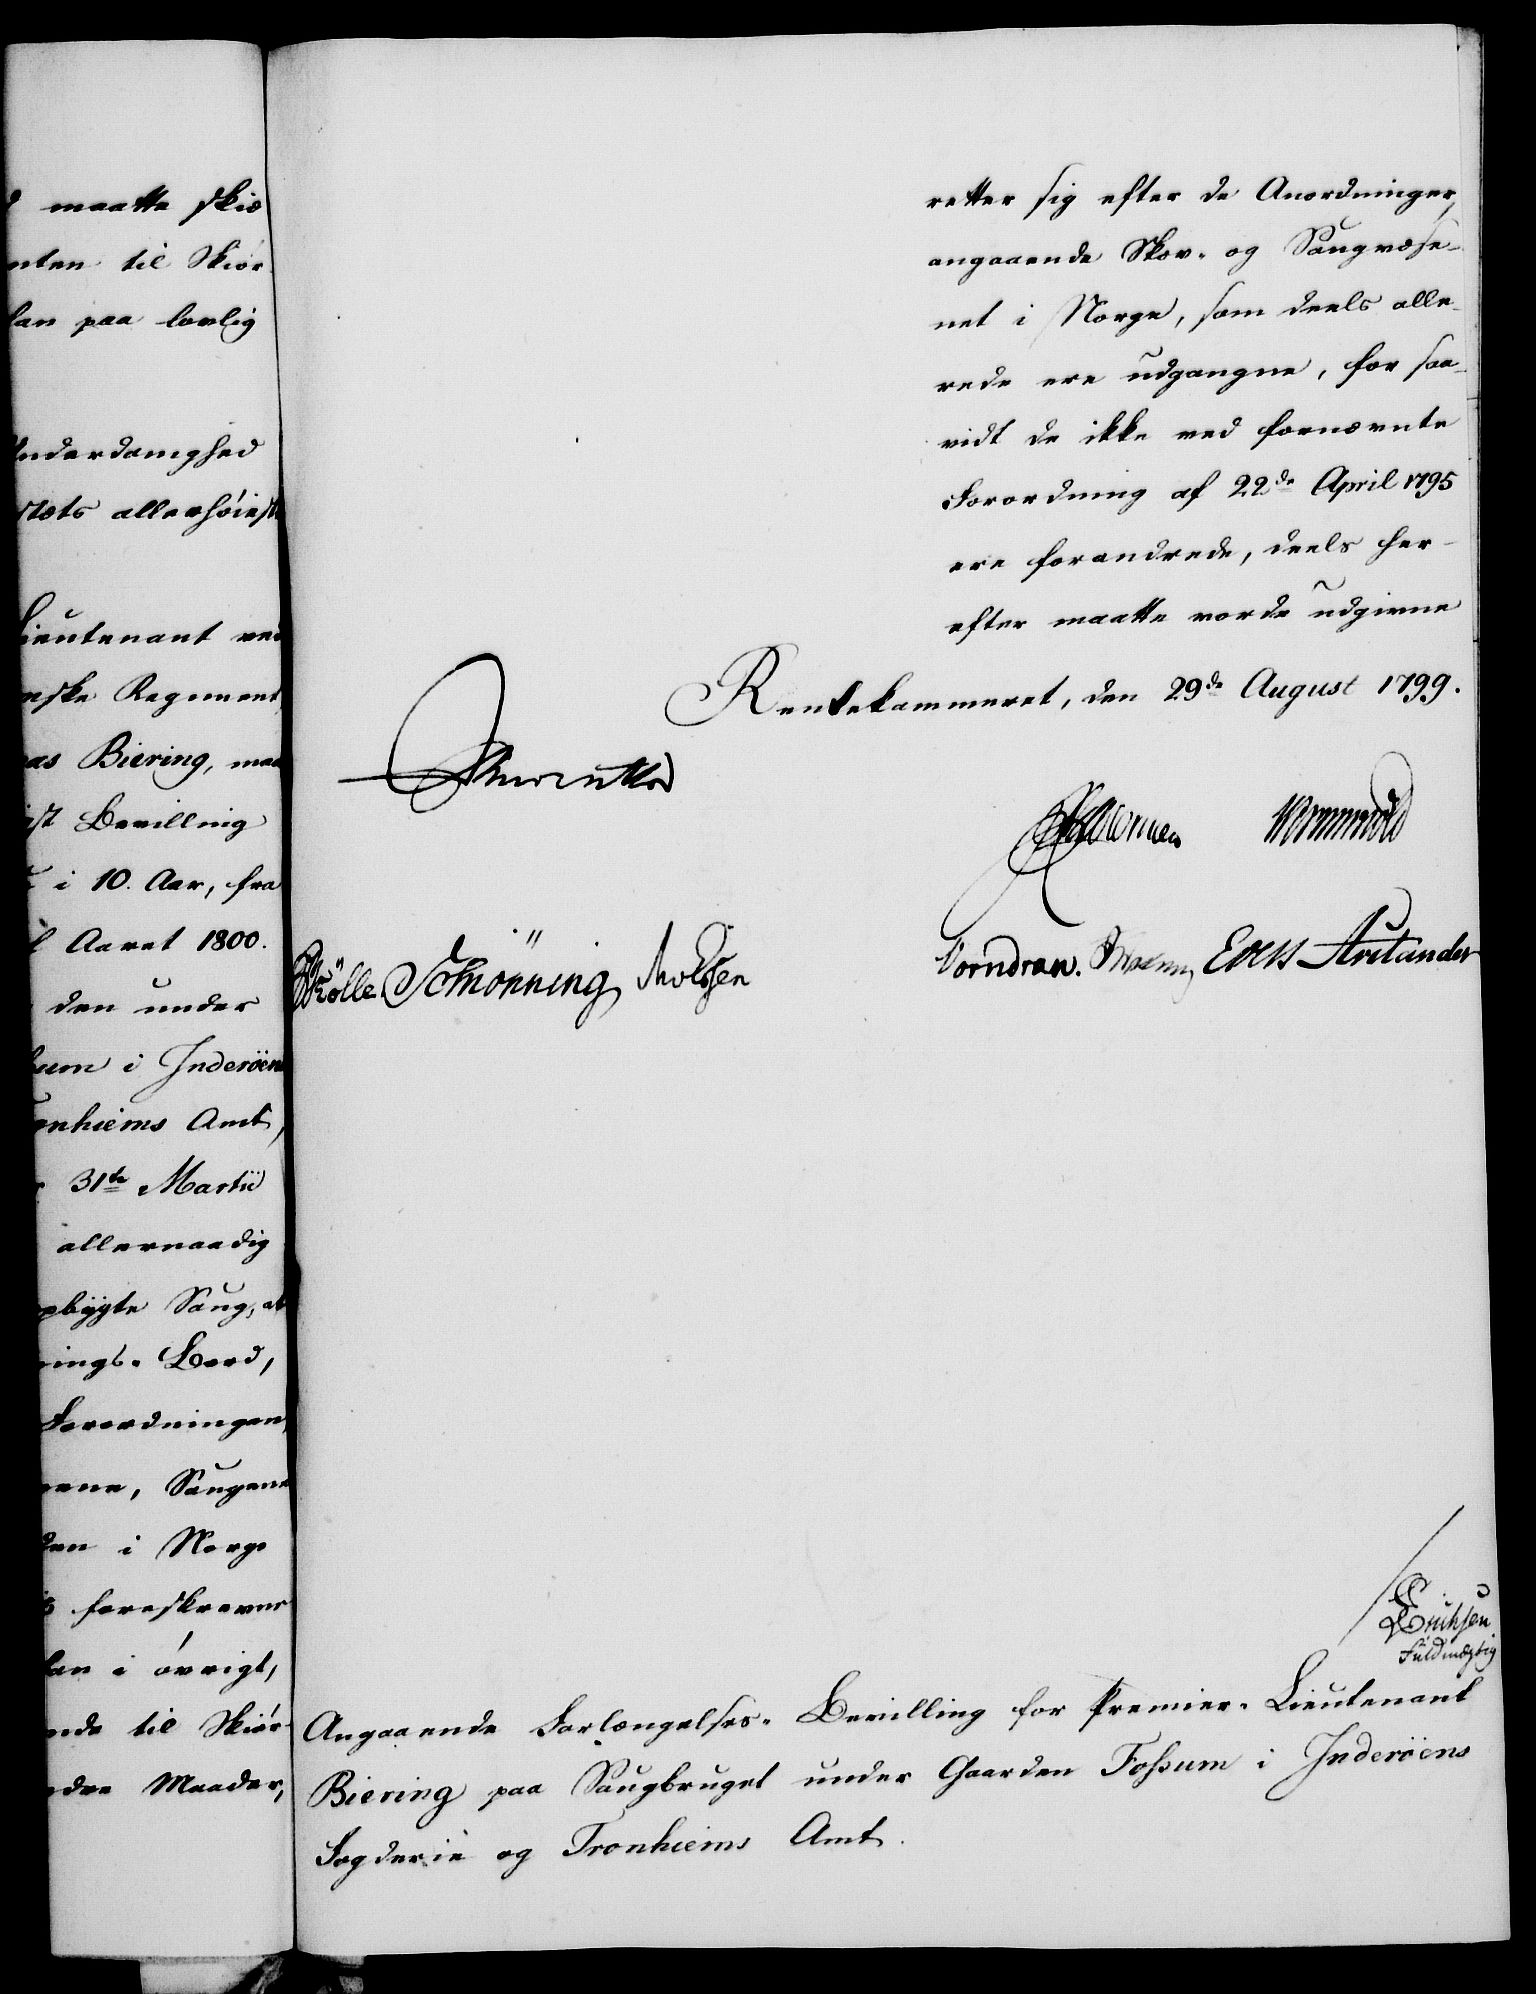 maatte skiæ
nten til Skiør
lan paa lovlig
Underdanighed
stæts allerhøiest
Lieutenant ved
nske Regiment,
as Biering, maa
st Bevilling
i 10. Aar, fra
l Aaret 1800.
den under
sum i Inderøens
onhiems Amt,
31te Martii
allernaadig
pbygte Saug, at
nings-Bord,
Forordningen,
ene, Saugene
den i Norge
foreskrevne
lan i øvrigt,
nde til Skiør-
ndre Maader,
retter sig efter de Anordninger,
angaaende Skov- og Saugvæse-
net i Norge, som deels alle-
rede ere udgangne, for saa-
vidt de ikke ved fornævnte
Forordning af 22de April 1795
ere forandrede, deels her-
efter maatte vorde udgivne
Rentekammeret, den 29de August 1799.
Wormskiold
Kølle Schønning
Vorndran. Evers Arctander
Erichsen
Fuldmægtig
Angaaende Forlængelses-Bevilling for Premier-Lieutenant
Biering paa Saugbruget under Gaarden Fossum i Inderøens
Fogderie og Tronhiems Amt.